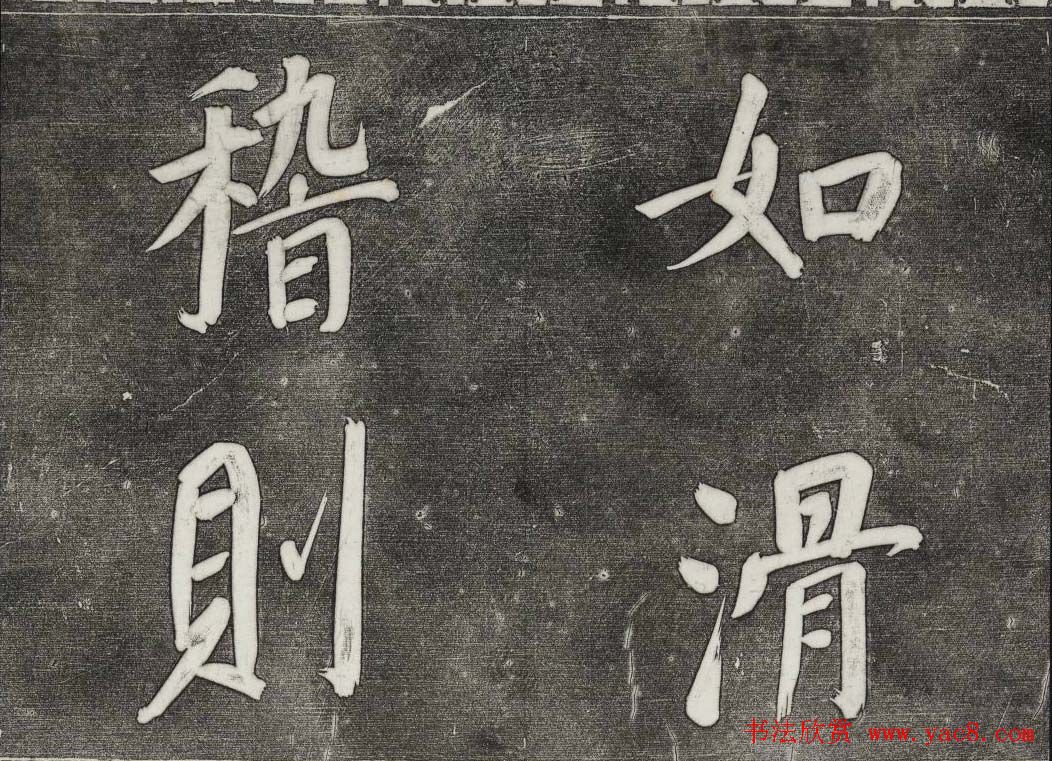 如滑
稽則
书法欣赏 www.yac8.com